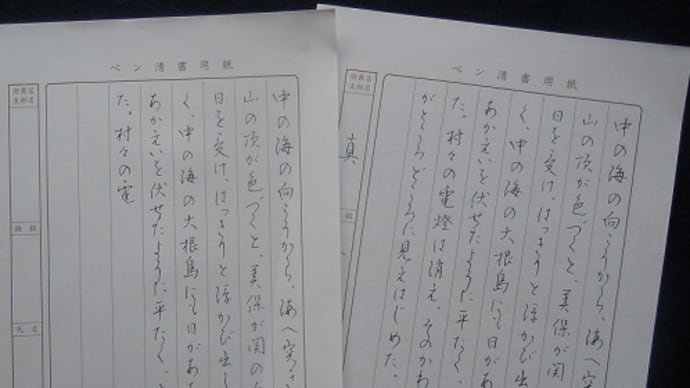 ペン清書用紙
中の海の向こうから、海へ突き
山の頂が色づくと、美保が関の
日を受け、はっきりと浮かび出し
く、中の海の大根島にも日があ
あかえいを伏せたように平たく、
た。村々の電
府県名
支部名
段級
氏名
ペン清書用紙
中の海の向こうから、海へ突
山の頂が色づくと、美保が関
日を受け、はっきりと浮かび出
く、中の海の大根島にも日があ
あかえいを伏せたように平たく、
た。村々の電燈は消え、そのかわ
がところどころに見えはじめた。
府県名
支部名
真
級